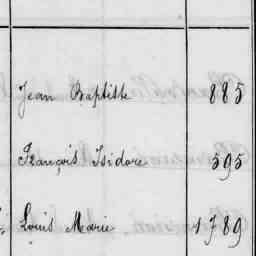 Jean Baptiste 885
François Isidore 595
Louis Marie 1789